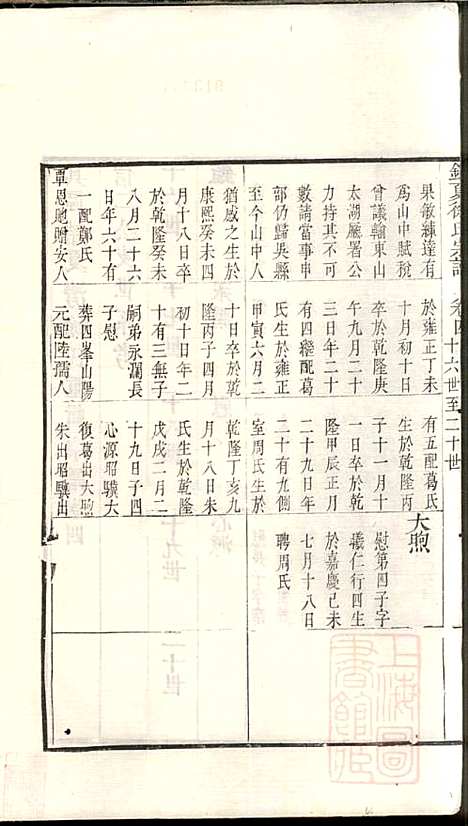 徐氏宗譜
卷四 十六世至二十世
果敏練達有
為山中賦稅
曾議翰東山
太湖廳署公
力持其不可
數請當事申
部仍歸吳縣
至今山中人
猶感之生於
康熙癸未四
月十八日卒
於乾隆癸未
八月二十六
日年六十有
一配鄭氏
覃恩貤贈安人
於雍正丁未
十月初十日
卒於乾隆庚
午九月二十
三日年二十
有四繼配葛
氏生於雍正
甲寅六月二
十日卒於乾
隆丙子四月
初十日年二
十有三無子
嗣弟永瀾長
子慰
葬四峯山陽
元配陸孺人
有五配葛氏
生於乾隆丙
子十一月十
一日卒於乾
隆甲辰正月
二十九日年
二十有九側
室周氏生於
乾隆丁亥九
月十八日朱
氏生於乾隆
戊戌二月二
十九日子四
心源昭驥大
復葛出大煦
朱出昭驥出
大煦
慰第四子字
羲仁行四生
於嘉慶己未
七月十八日
聘周氏
上海圖書館藏